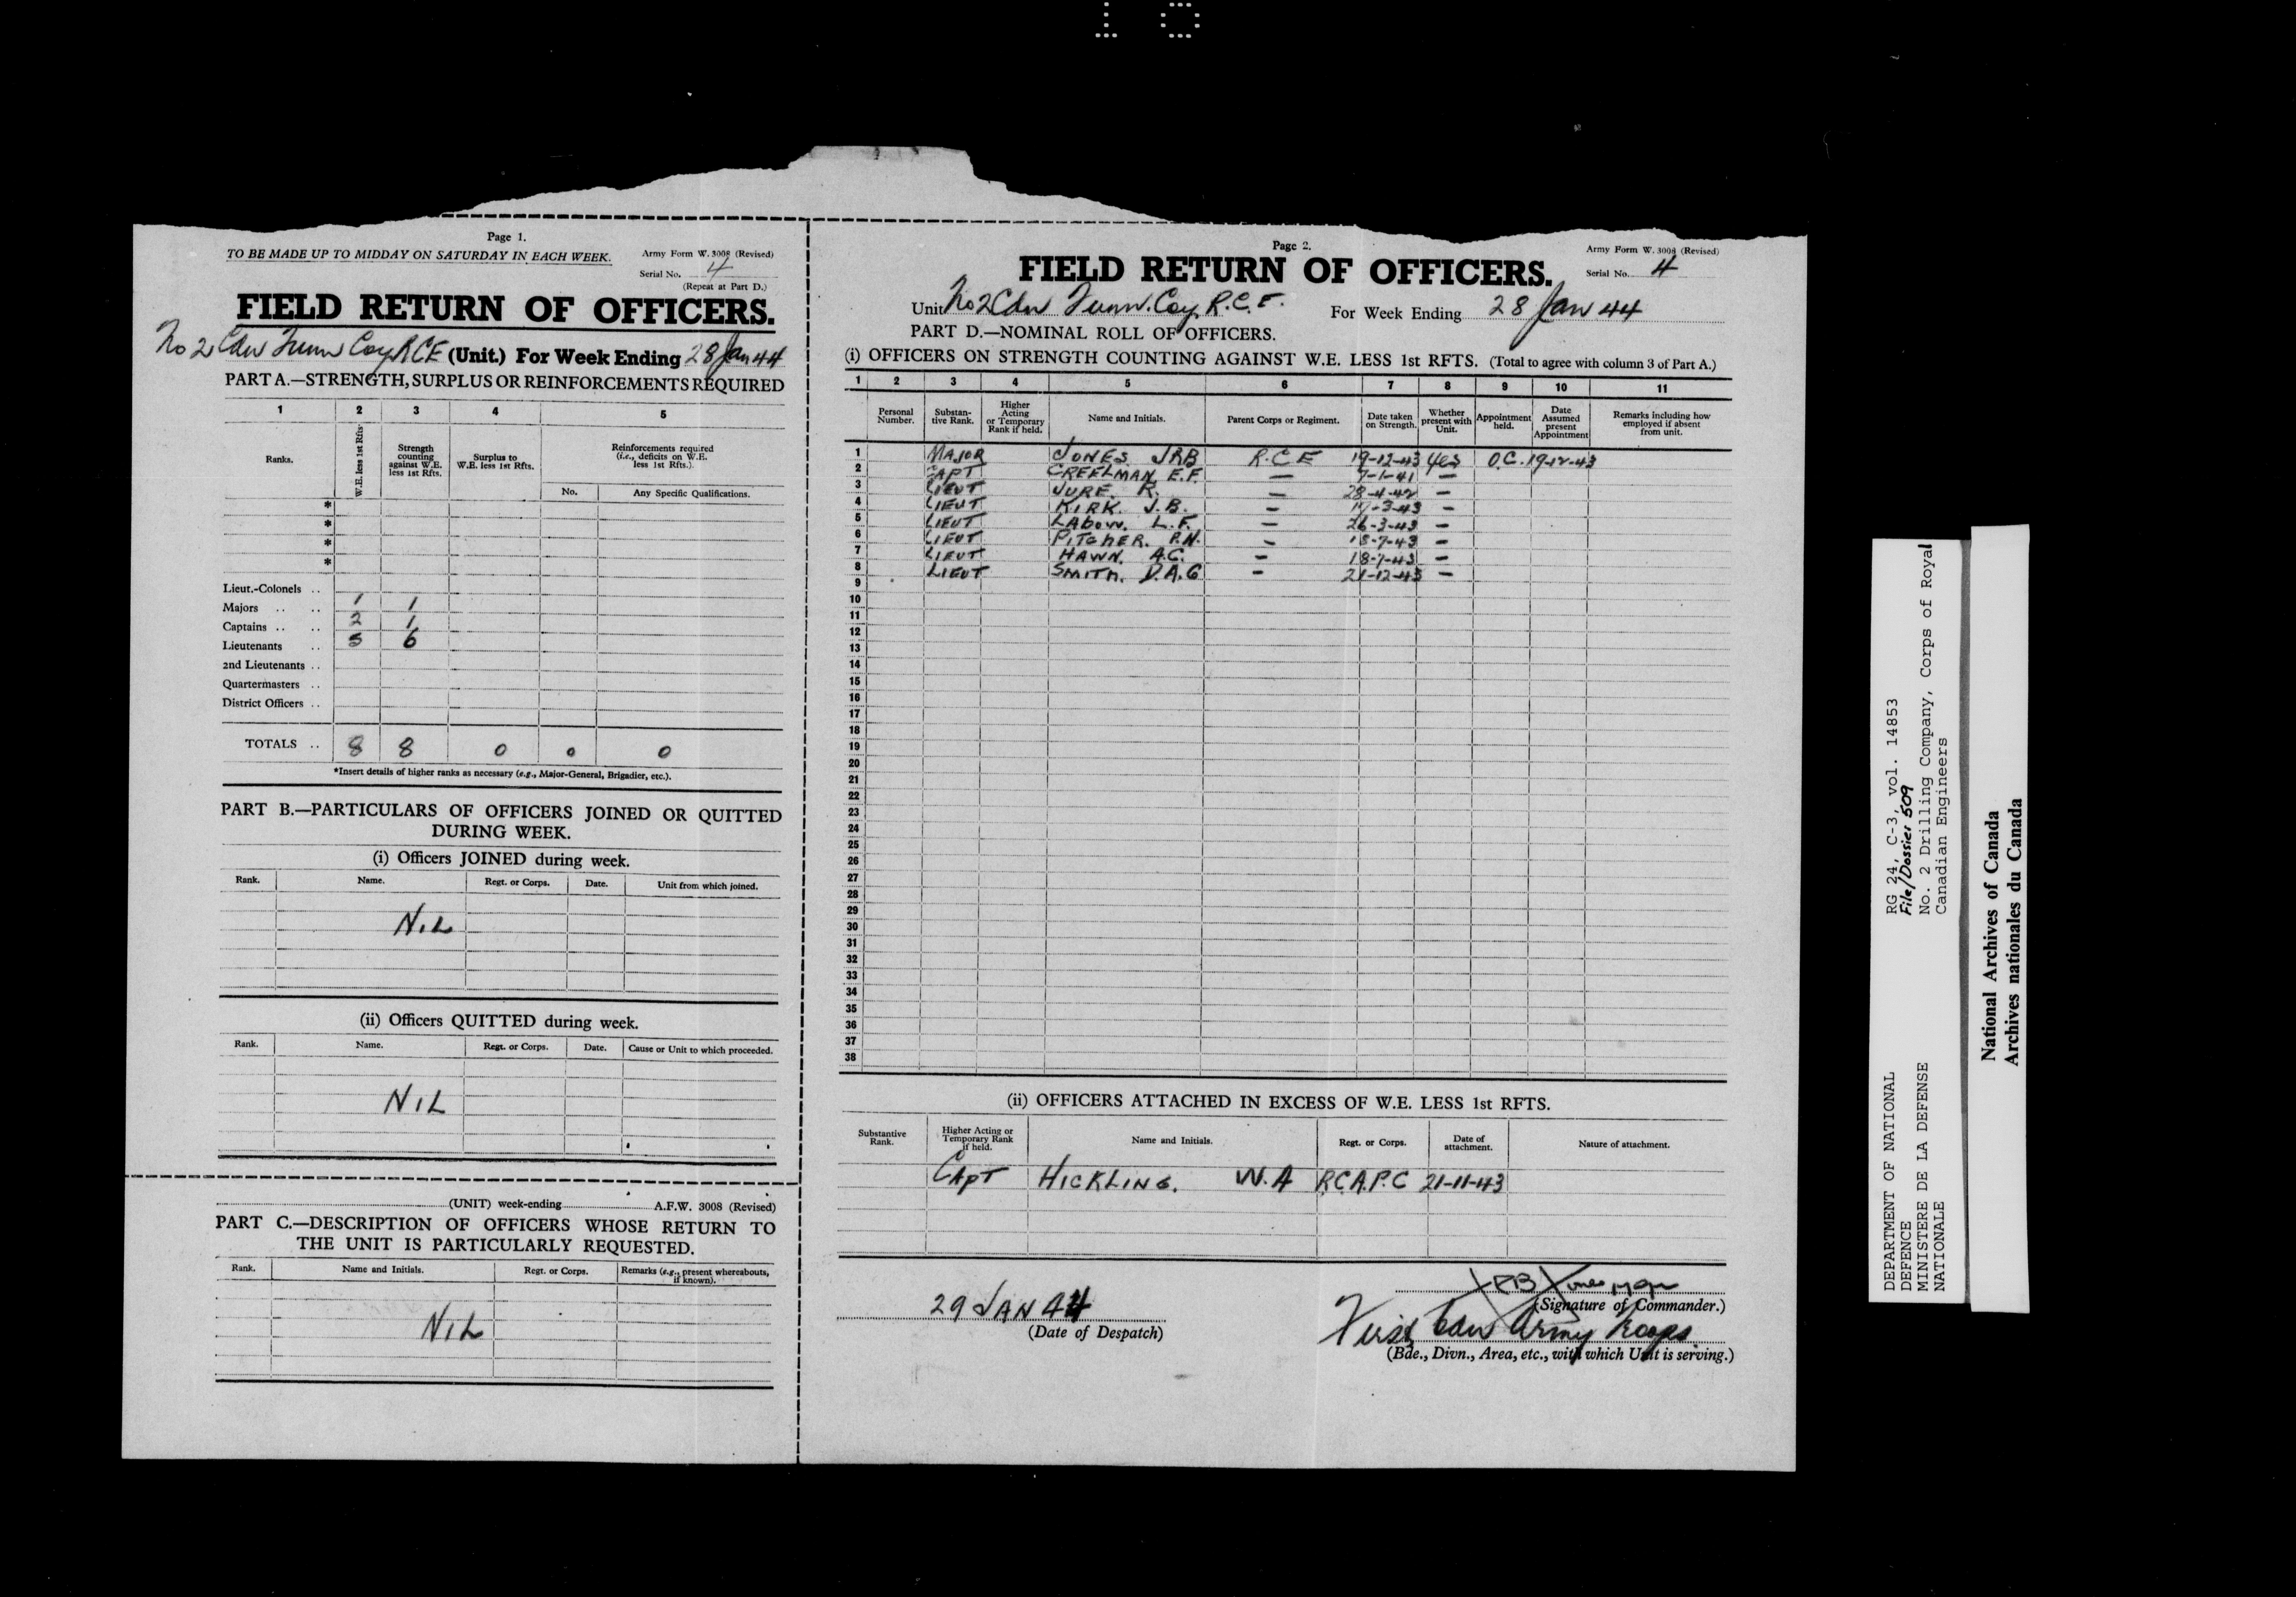 Page 1.
TO BE MADE UP TO MIDDAY ON SATURDAY IN EACH WEEK.
Army Form W. 3008 (Revised)
Serial No. 4
(Repeat at Part D.)
FIELD RETURN OF OFFICERS.
No 2 Cdn Tunn Coy RCE (Unit.) For Week Ending 28 Jan 44
PART A.—STRENGTH, SURPLUS OR REINFORCEMENTS REQUIRED
1 2 3 4 5
Ranks.
W.E. less 1st Rfts.
Strength counting against W.E. less 1st Rfts.
Surplus to W.E. less 1st Rfts.
Reinforcements required (i.e., deficits on W.E. less 1st Rfts.).
No. Any Specific Qualifications.
*
*
*
*
Lieut.-Colonels ..
Majors .. .. 1 1
Captains .. .. 2 1
Lieutenants .. 5 6
2nd Lieutenants ..
Quartermasters ..
District Officers ..
TOTALS .. 8 8 0 0 0
*Insert details of higher ranks as necessary (e.g., Major-General, Brigadier, etc.).
PART B.—PARTICULARS OF OFFICERS JOINED OR QUITTED
DURING WEEK.
(i) Officers JOINED during week.
Rank. Name. Regt. or Corps. Date. Unit from which joined.
NIL
(ii) Officers QUITTED during week.
Rank. Name. Regt. or Corps. Date. Cause or Unit to which proceeded.
NIL
(UNIT) week-ending A.F.W. 3008 (Revised)
PART C.—DESCRIPTION OF OFFICERS WHOSE RETURN TO
THE UNIT IS PARTICULARLY REQUESTED.
Rank. Name and Initials. Regt. or Corps. Remarks (e.g., present whereabouts, if known).
NIL
Page 2.
Army Form W. 3008 (Revised)
Serial No. 4
FIELD RETURN OF OFFICERS.
Unit No 2 Cdn Tunn. Coy. R.C.E. For Week Ending 28 Jan 44
PART D.—NOMINAL ROLL OF OFFICERS.
(i) OFFICERS ON STRENGTH COUNTING AGAINST W.E. LESS 1st RFTS. (Total to agree with column 3 of Part A.)
1 2 3 4 5 6 7 8 9 10 11
Personal Number.
Substan-tive Rank.
Higher Acting or Temporary Rank if held.
Name and Initials.
Parent Corps or Regiment.
Date taken on Strength.
Whether present with Unit.
Appointment held.
Date Assumed present Appointment
Remarks including how employed if absent from unit.
1 MAJOR JONES JRB R.C.E 19-12-43 Yes O.C. 19-12-43
2 CAPT CREELMAN E.F. — 7-1-41 —
3 LIEUT JURE. R. — 28-4-42 —
4 LIEUT KIRK. J.B. — -3-43 —
5 LIEUT LABOW. L.F. — 26-3-43 —
6 LIEUT PITCHER. P.N. — 18-7-43 —
7 LIEUT HAWN. A.C. — 18-7-43 —
8 LIEUT SMITH. D.A.G — 21-12-43 —
9
10
11
12
13
14
15
16
17
18
19
20
21
22
23
24
25
26
27
28
29
30
31
32
33
34
35
36
37
38
(ii) OFFICERS ATTACHED IN EXCESS OF W.E. LESS 1st RFTS.
Substantive Rank. Higher Acting or Temporary Rank if held. Name and Initials. Regt. or Corps. Date of attachment. Nature of attachment.
CAPT HICKLING. W.A R.C.A.P.C 21-11-43
JRB Jones Major
(Signature of Commander.)
29 JAN 44
(Date of Despatch)
First Cdn Army Troops
(Bde., Divn., Area, etc., with which Unit is serving.)
RG 24, C-3, vol. 14853
File/Dossier 509
No. 2 Drilling Company, Corps of Royal
Canadian Engineers
DEPARTMENT OF NATIONAL
DEFENCE
MINISTERE DE LA DEFENSE
NATIONALE
National Archives of Canada
Archives nationales du Canada